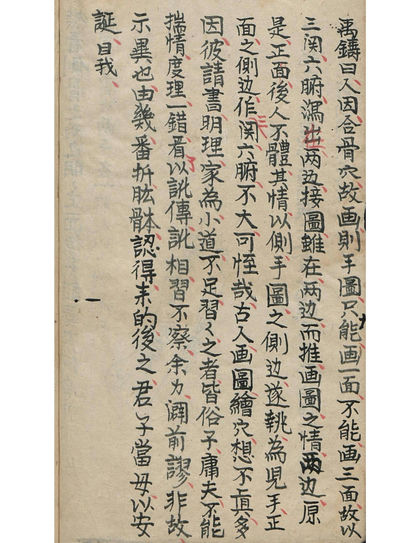 禹鑄曰人因合骨穴故画則手圖只能画一面不能画三面故以
三関六腑瀉出两边接圖雖在两边而推画圖之情两边原
是正面後人不體其情以側手圖之側边遂執為児手正
面之側边作三関六腑不大可怪哉古入画圖繪穴想不真多
因彼請書明理家為小道不足習々之者皆俗子庸夫不能
揣情度理一錯看以訛傳訛相習不察余力闢前謬非故
示異也由幾番折肱骵認得来的後之君子當毋以妄
誕目我